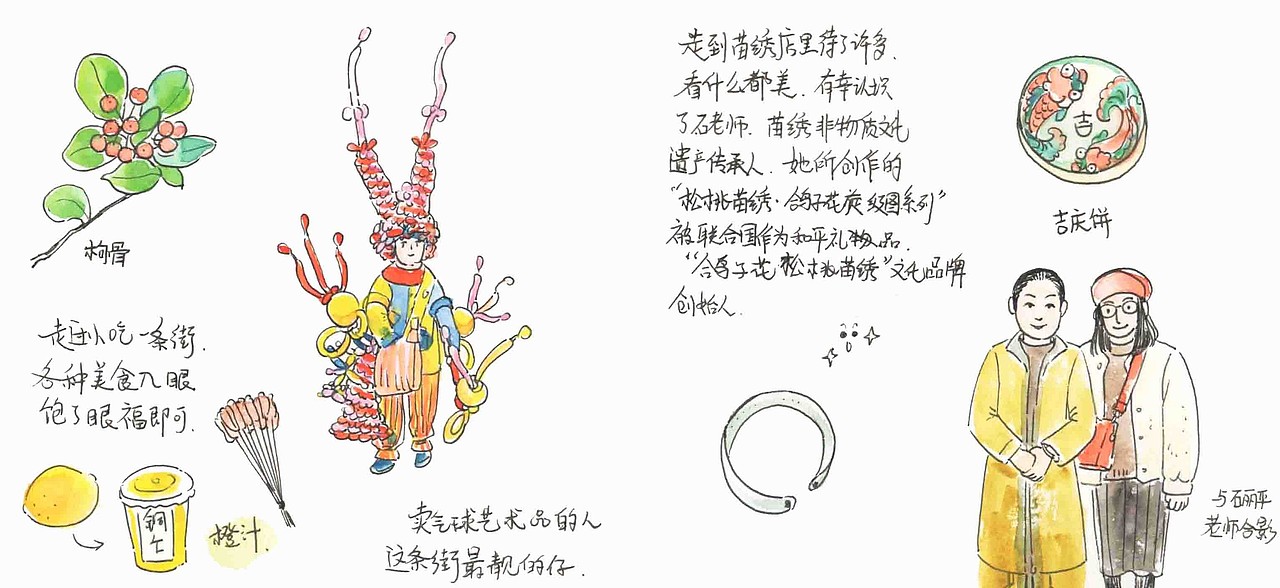 枸骨
走进小吃一条街.
各种美食入眼
饱了眼福即可.
铜仁
橙汁.
卖气球艺术品的人
这条街最靓的仔.
走到苗绣店里待了许多.
看什么都美.有幸认识
了石老师.苗绣非物质文化
遗产传承人.她所创作的
“松桃苗绣·鸽子花 图系列”
被联合国作为和平礼物品.
“鸽子花松桃苗绣”文化品牌
创始人.
吉
吉庆饼
与石丽平
老师合影